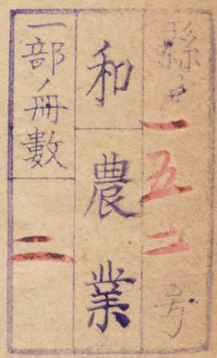 縣
一五二
号
和
農業
一部ノ冊數
二